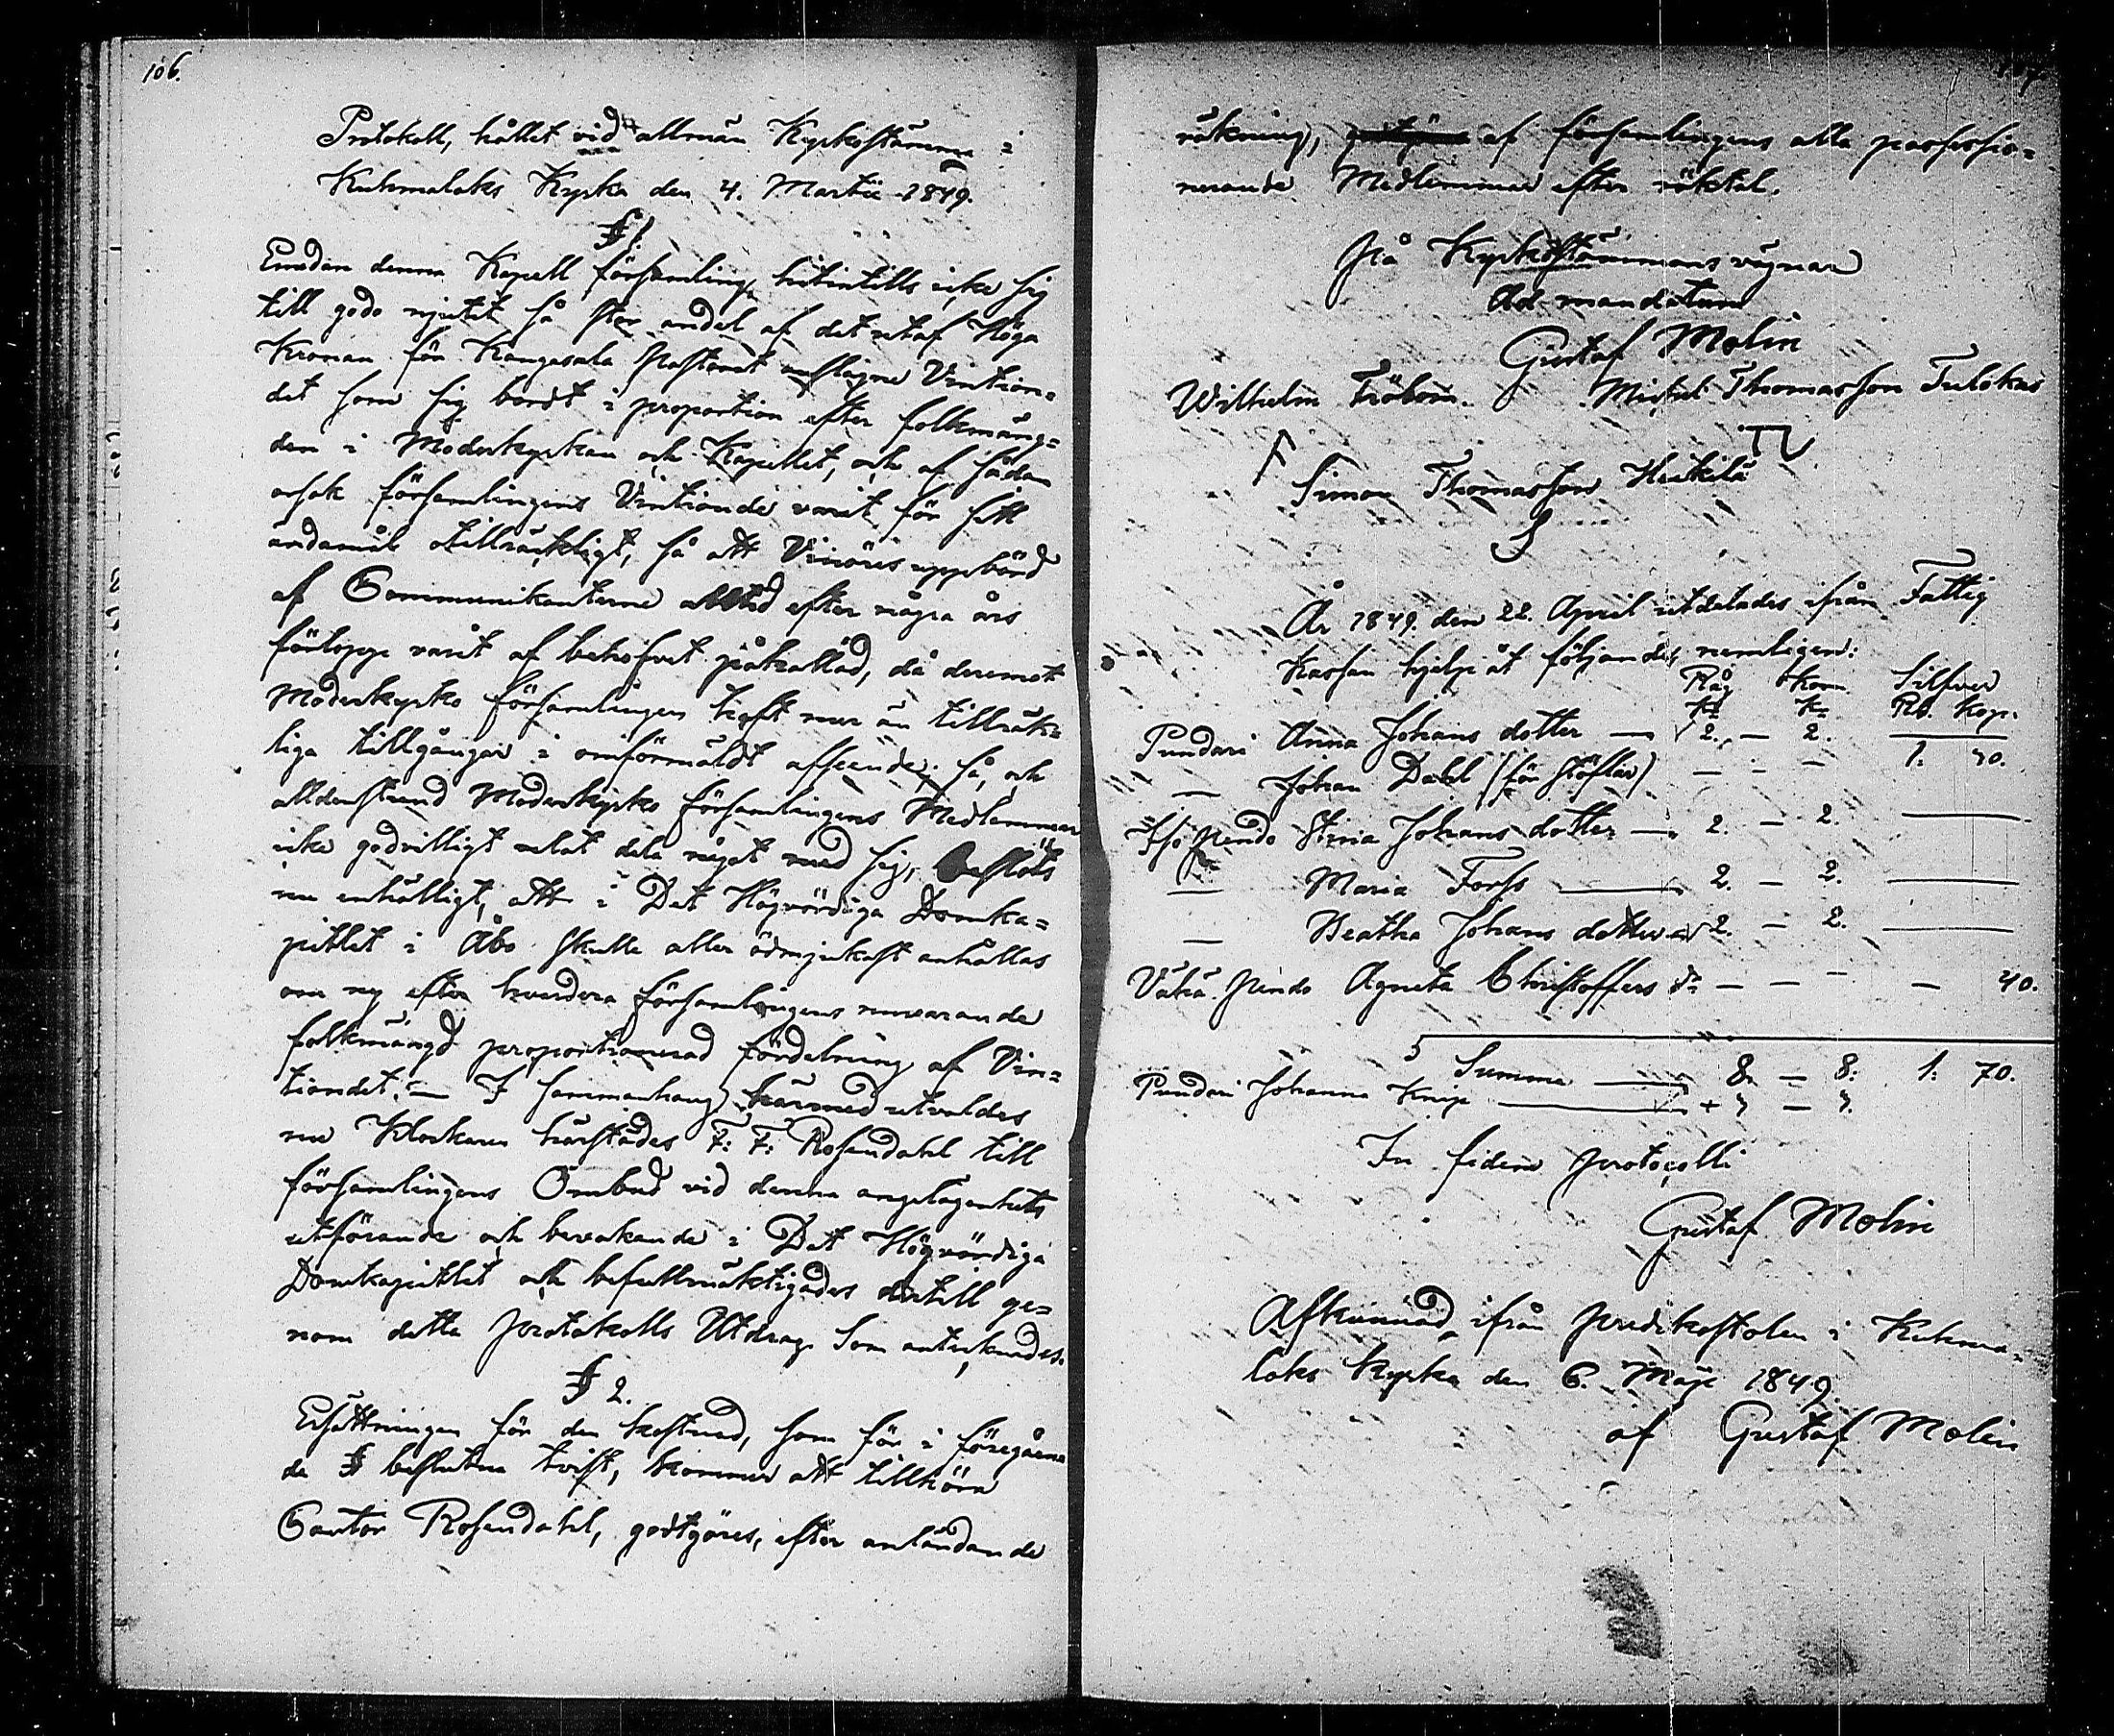 106.
Protokoll, hållet vid allmän Kyrkostämma i
Kuhmalaks Kyrka den 4. Martii 1849.
§ 1.
Emedan denna Kapell församling hitintills icke sig
till godo njutit så stor andel af det utaf Höga
Kronan för Kangasala Pastorat anslagne Vintion-
det som sig bordt i proportion efter folkmäng-
den i Moderkyrkan och Kapellet, och af sådan
orsak församlingens Vintionde varit för sitt
ändamål otillräckligt, så att Vinöres uppbörd
af Communikanterne alltid efter några års
förlopp varit af behofvet påkallad, då deremot
Moderkyrko församlingen haft mer än tillräck-
liga tillgångar i omförmäldt afseende; så, och
alldenstund Moderkyrko församlingens Medlemmar
icke godvilligt velat dela något med sig, beslöts
nu enhälligt, att i Det Högvördiga Domka-
pitlet i Åbo skulle aller ödmjukast anhållas
om ny efter hvardera församlingens nuvarande
folkmängd proportionerad fördelning af Vin-
tiondet. — I sammanhang härmed utvaldes
nu Klockaren härstädes F: F: Rosendahl till
församlingens Ombud vid denna angelägenhets
utförande och bevakande i Det Högvördiga
Domkapitlet och befullmäktigades dertill ge-
nom detta Protokolls Utdrag som antecknades.
§ 2.
Ersättningen för den kostnad, som för i föregåen-
de § beslutna tvist, kommer att tillhöra
Cantor Rosendahl, godtgöres, efter anländande
107
räkning, af församlingens alla possessio-
nerande Medlemmar efter röktal.
På Kyrkostämmans vägnar
Ad mandatum
Gustaf Molin
Wilhelm Fröbom. Michel Thomasson Tulokas
Simon Thomasson Heikilä
År 1849. den 22. April utdelades ifrån Fattig
Kassan hjelp åt följande, nemligen:
Råg Korn Silfver
Kr Kr Rb. Kop.
Pundari Anna Johans dotter — 2. — 2. —
— Johan Dahl (för stöflar) — — — 1. 30.
Iso Pendo Stina Johans dotter — 2. — 2. —
— Maria Forss — 2. — 2. —
— Beatha Johans dotter 2. — 2. —
Vähä Pendo Agneta Christoffers dr — — — — 40.
Summa — 8. — 8: 1: 70.
Pundari Johanna Knip —
In fidem Protocolli
Gustaf Molin
Afkunnad ifrån Predikostolen i Kuhma-
laks Kyrka den 6. Maji 1849.
af Gustaf Molin